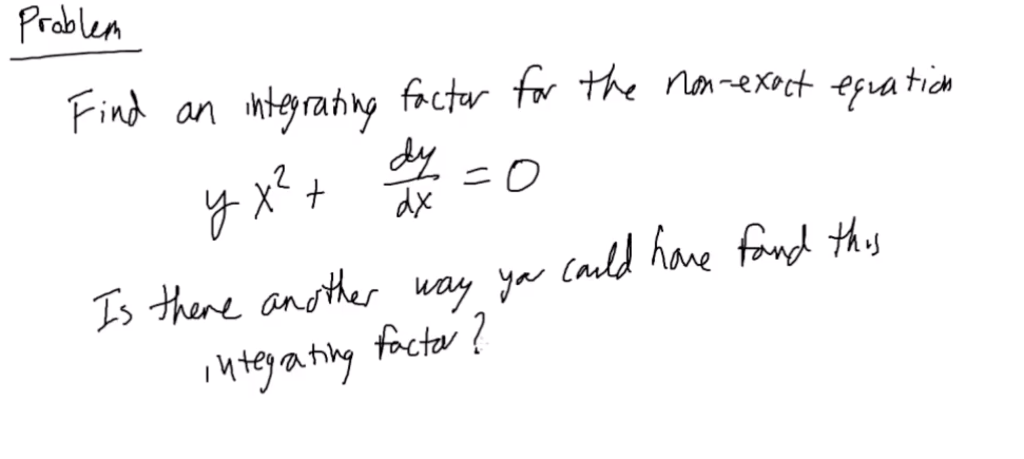 Problem
Find an integrating factor for the non-exact equation
y x² + dy/dx = 0
Is there another way you could have found this
integrating factor?